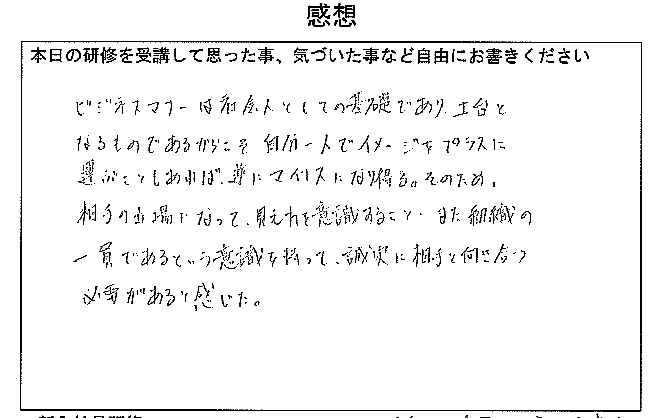 感想
本日の研修を受講して思った事、気づいた事など自由にお書きください
ビジネスマナーは社会人としての基礎であり、土台と
なるものであるからこそ 自分一人でイメージをプラスに
運ぶこともあれば、逆にマイナスになり得る。そのため、
相手の立場になって、見えれを意識すること、また組織の
一員であるという意識を持って、誠実に相手と向き合う
必要があると感じた。